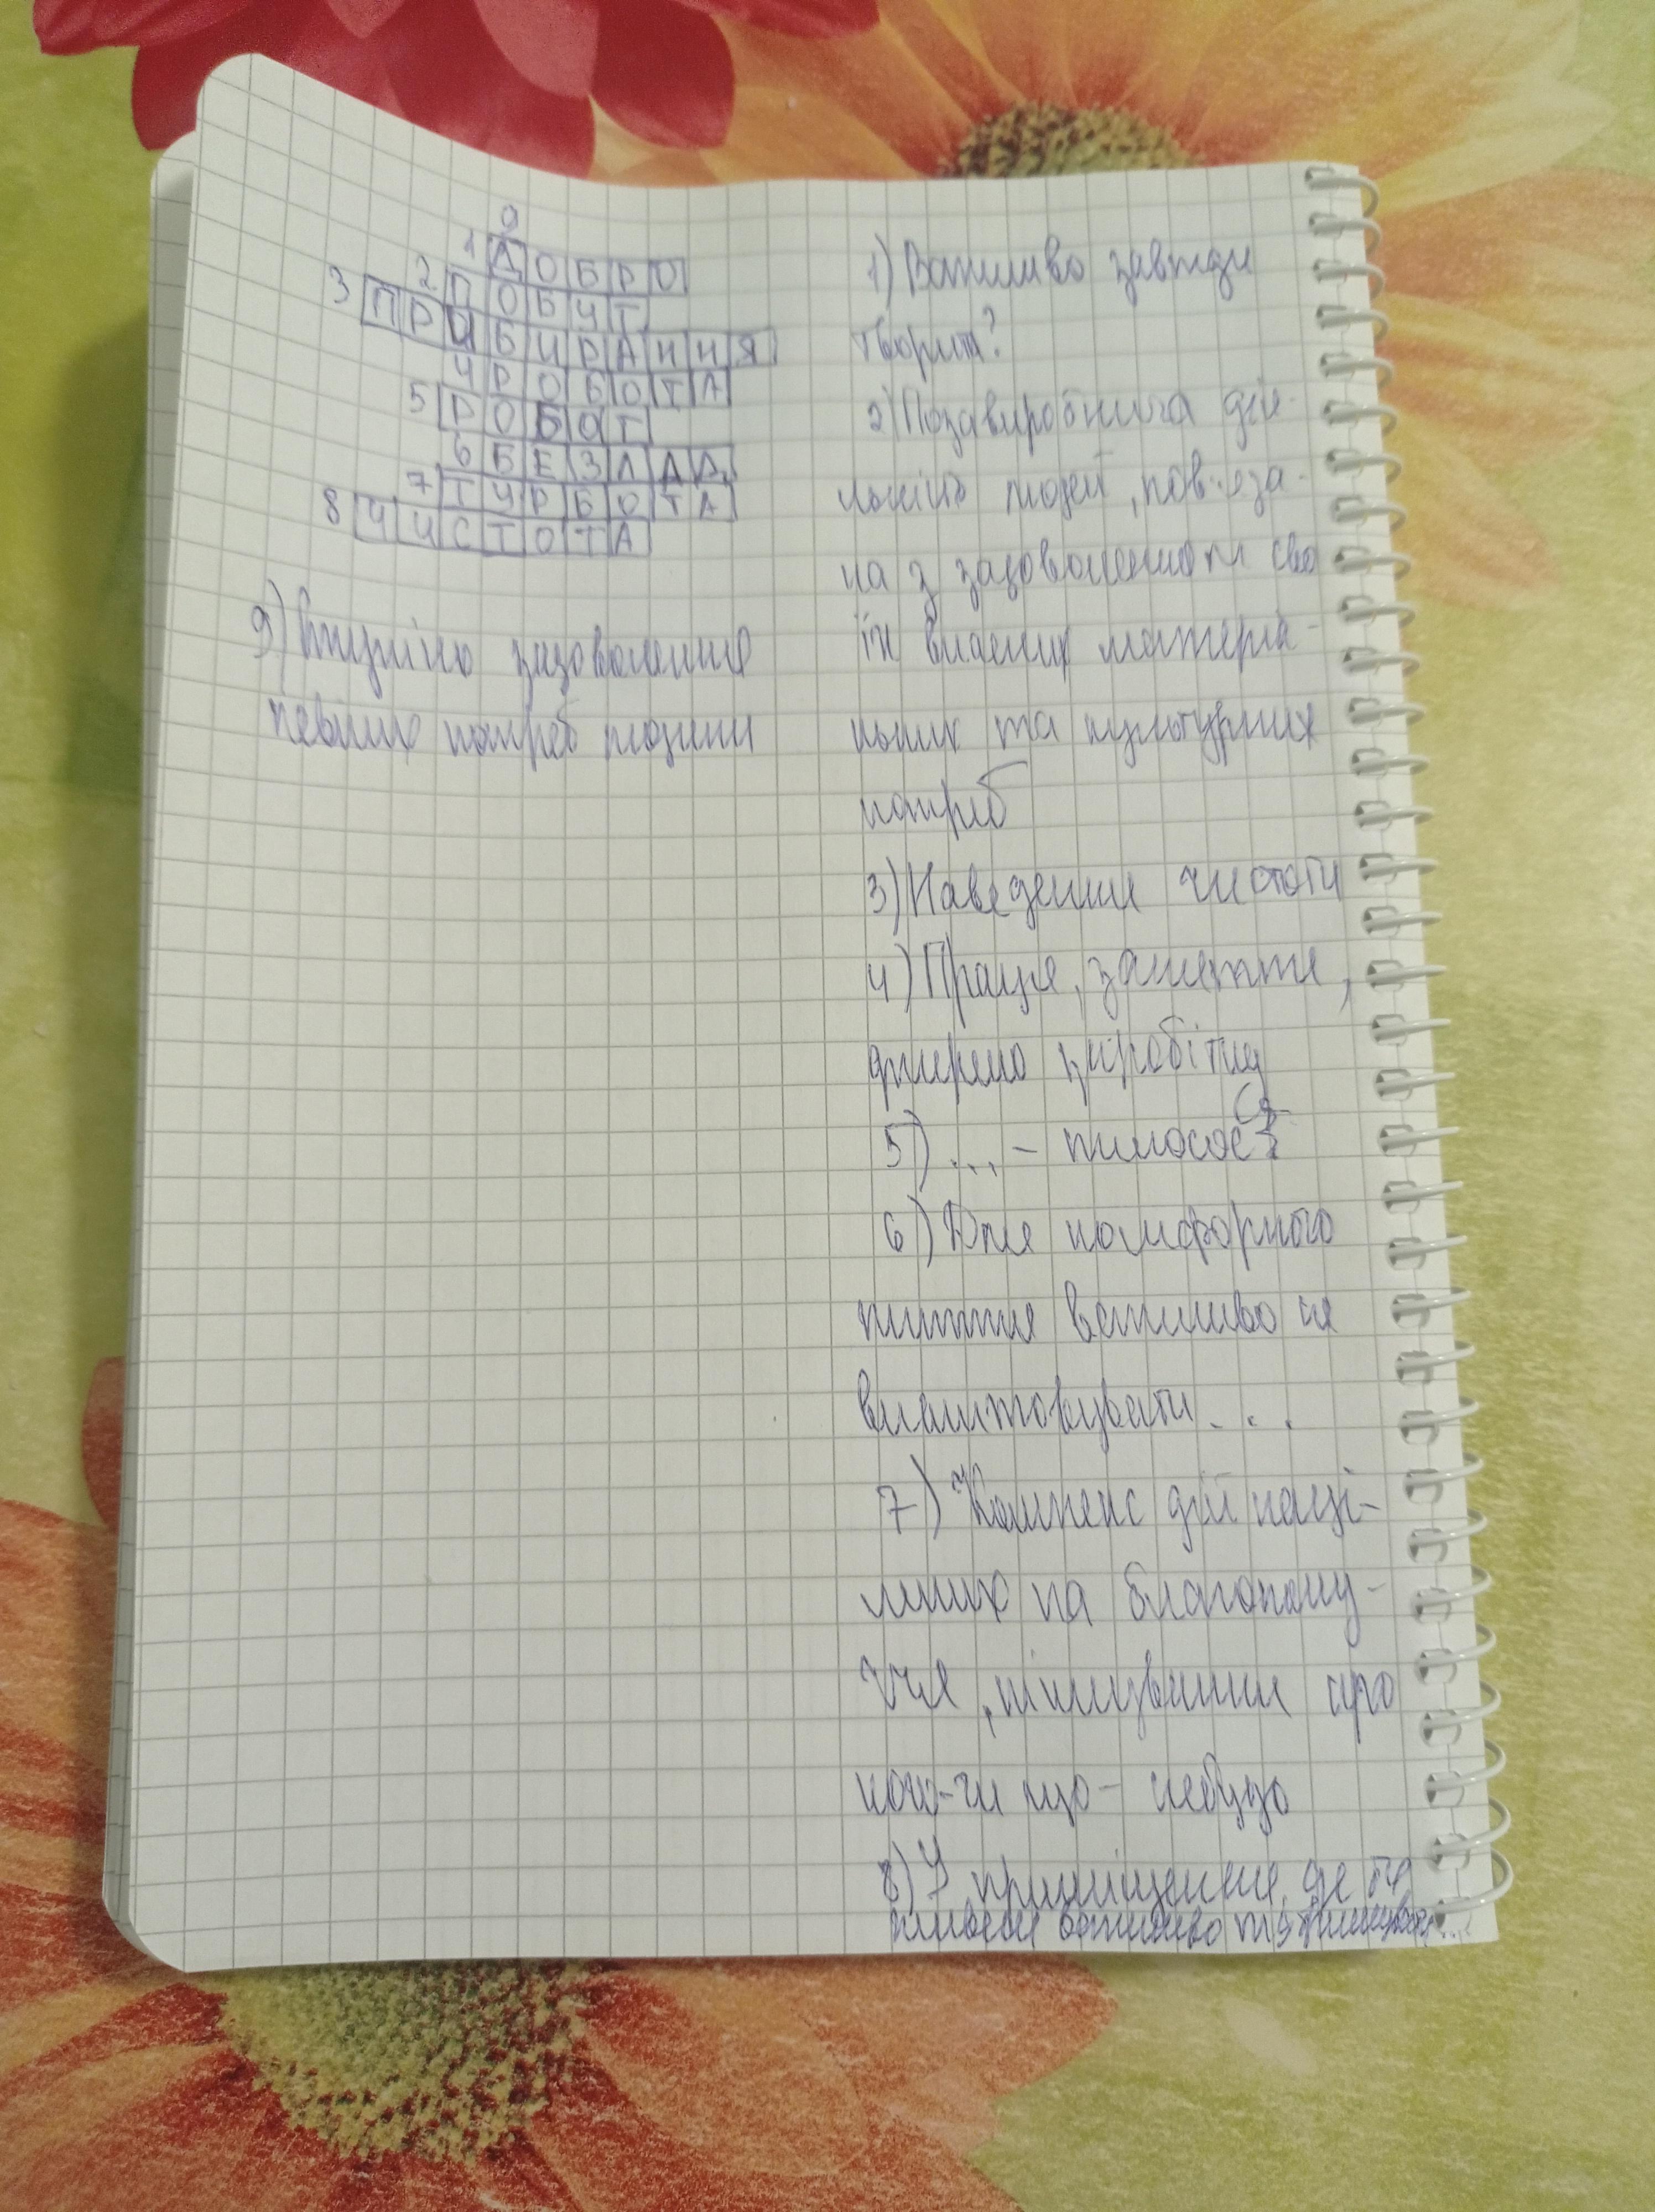 9
1 ДОБРО
2 ПОБУТ
3 ПРИБИРАННЯ
4 РОБОТА
5 РОБОТ
6 БЕЗЛАД
7 ТУРБОТА
8 ЧИСТОТА
9) Ступінь задоволення
певних потреб людини
1) Важливо завжди
творити?
2) Позавиробнича дія-
льність людей, пов'яза-
на з задоволенням сво
їх власних матеріа-
льних та культурних
потреб
3) Наведення чистоти
4) Праця, заняття,
джерело заробітку
5) ... - пилосос
6) Для комфорного
життя важливо не
влаштовувати...
7) Комплекс дій наці-
лених на благополу-
ччя, піклування про
кого-чи що-небудь
8) У приміщенні, де ти
живеш важливо підтримувати...